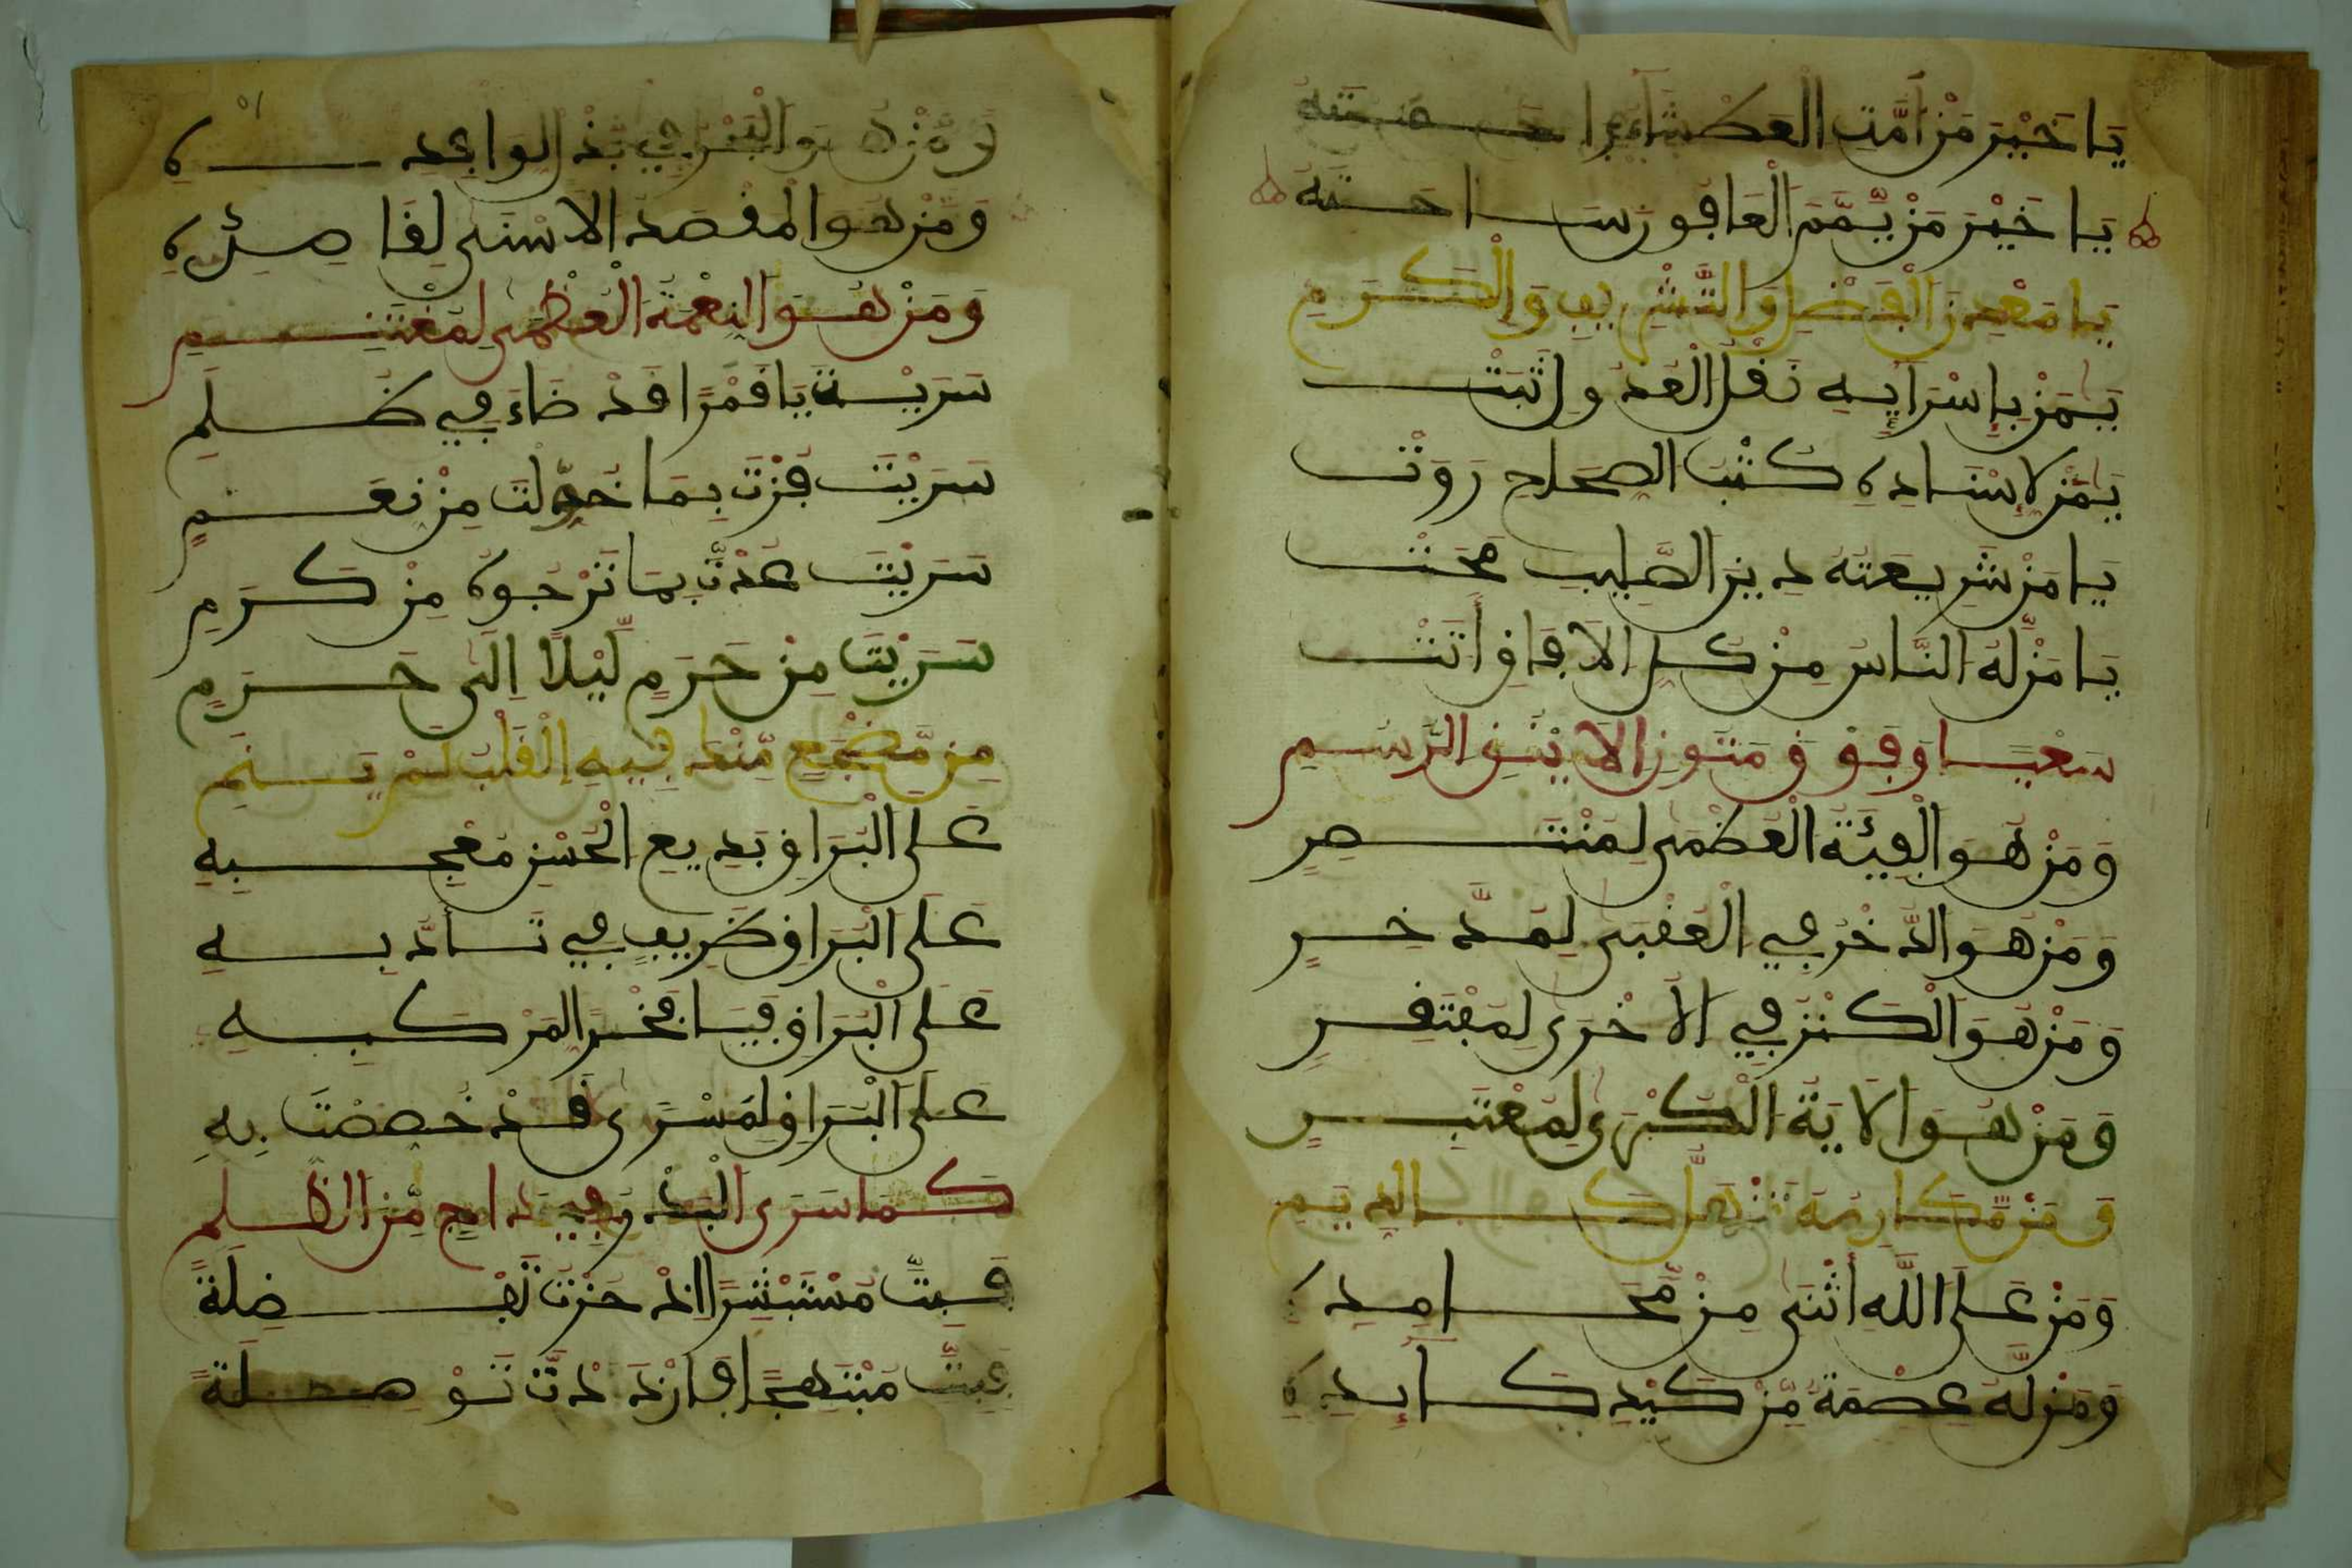 يَا خَيْرَ مَنْ أَمَّتِ الْعَطْشَاءُ
يَا خَيْرَ مَنْ يَّمَّمَ الْعَافُونَ سَاحَتَهُ
يَا مَعْدِنَ الْفَضْلِ وَالتَّشْرِيفِ وَالْكَرَمِ
يَمَنْ بِإِسْرَايِهِ نَقْلُ الْعَدُولِ ثَبَتْ
يَمَنْ لِإِسْنَادِهِ كُتْبُ الصِّحَاحِ رَوَتْ
يَا مَنْ شَرِيعَتُهُ دِينَ الصَّلِيبِ مَحَتْ
يَا مَنْ لَّهُ النَّاسُ مِنْ كُلِّ الْآفَاقِ أَتَتْ
سَعْيًا وَفَوْقَ مُتُونِ الْأَيْنُقِ الرُّسُمِ
وَمَنْ هُوَ الْفِيَّةُ الْعُظْمَى لِمُنْتَصِرِ
وَمَنْ هُوَ الذُّخْرُ فِي الْعُقْبَى لِمُدَّخِرٍ
وَمَنْ هُوَ الْكَنْزُ فِي الْأُخْرَى لِمُفْتَقِرِ
وَمَنْ هُوَ الْآيَةُ الْكُبْرَى لِمُعْتَبِرٍ
وَمَنْ مَّكَارِمُهُ كَالدِّيَمِ
وَمَنْ عَلَى اللَّهِ أَثْنَى مِنْ مَّحَامِدِهِ
وَمَنْ لَّهُ عِصْمَةٌ مِّنْ كَيْدِ كَايِدِهِ
وَمَنْ هُوَ الْبَرُّ فِي
وَمَنْ هُوَ الْمَقْصَدُ الْأَسْنَى لِقَاصِدِهِ
وَمَنْ هُوَ النِّعْمَةُ الْعُظْمَى لِمُغْتَنِمِ
سَرَيْتَ يَا قَمَرًا قَدْ ضَاءَ فِي ظُلَمِ
سَرَيْتَ فُزْتَ بِمَا خُوِّلْتَ مِنْ نِعَمٍ
سَرَيْتَ عُدْتَّ بِمَا تَرْجُوهُ مِنْ كَرَمِ
سَرَيْتَ مِنْ حَرَمٍ لَّيْلًا إِلَى حَرَمٍ
مِن مَّضْجَعٍ مِّنْكَ فِيهِ الْقَلْبُ لَمْ يَنَمِ
عَلَى الْبُرَاقِ بَدِيعِ الْحُسْنِ مُعْجِبِهِ
عَلَى الْبُرَاقِ ظَرِيفٍ فِي تَأَدُّبِهِ
عَلَى الْبُرَاقِ فَيَا فَخْرًا لِمَرْكَبِهِ
عَلَى الْبُرَاقِ لِمَسْرًى قَدْ خُصِصْتَ بِهِ
كَمَا سَرَى الْبَدْرُ فِي دَاجٍ مِّنَ الظُّلَمِ
فَبِتَّ مُسْتَبْشِرًا إِذْ حُزْتَ تَفْضِلَةً
فَبِتَّ مُبْتَهِجًا